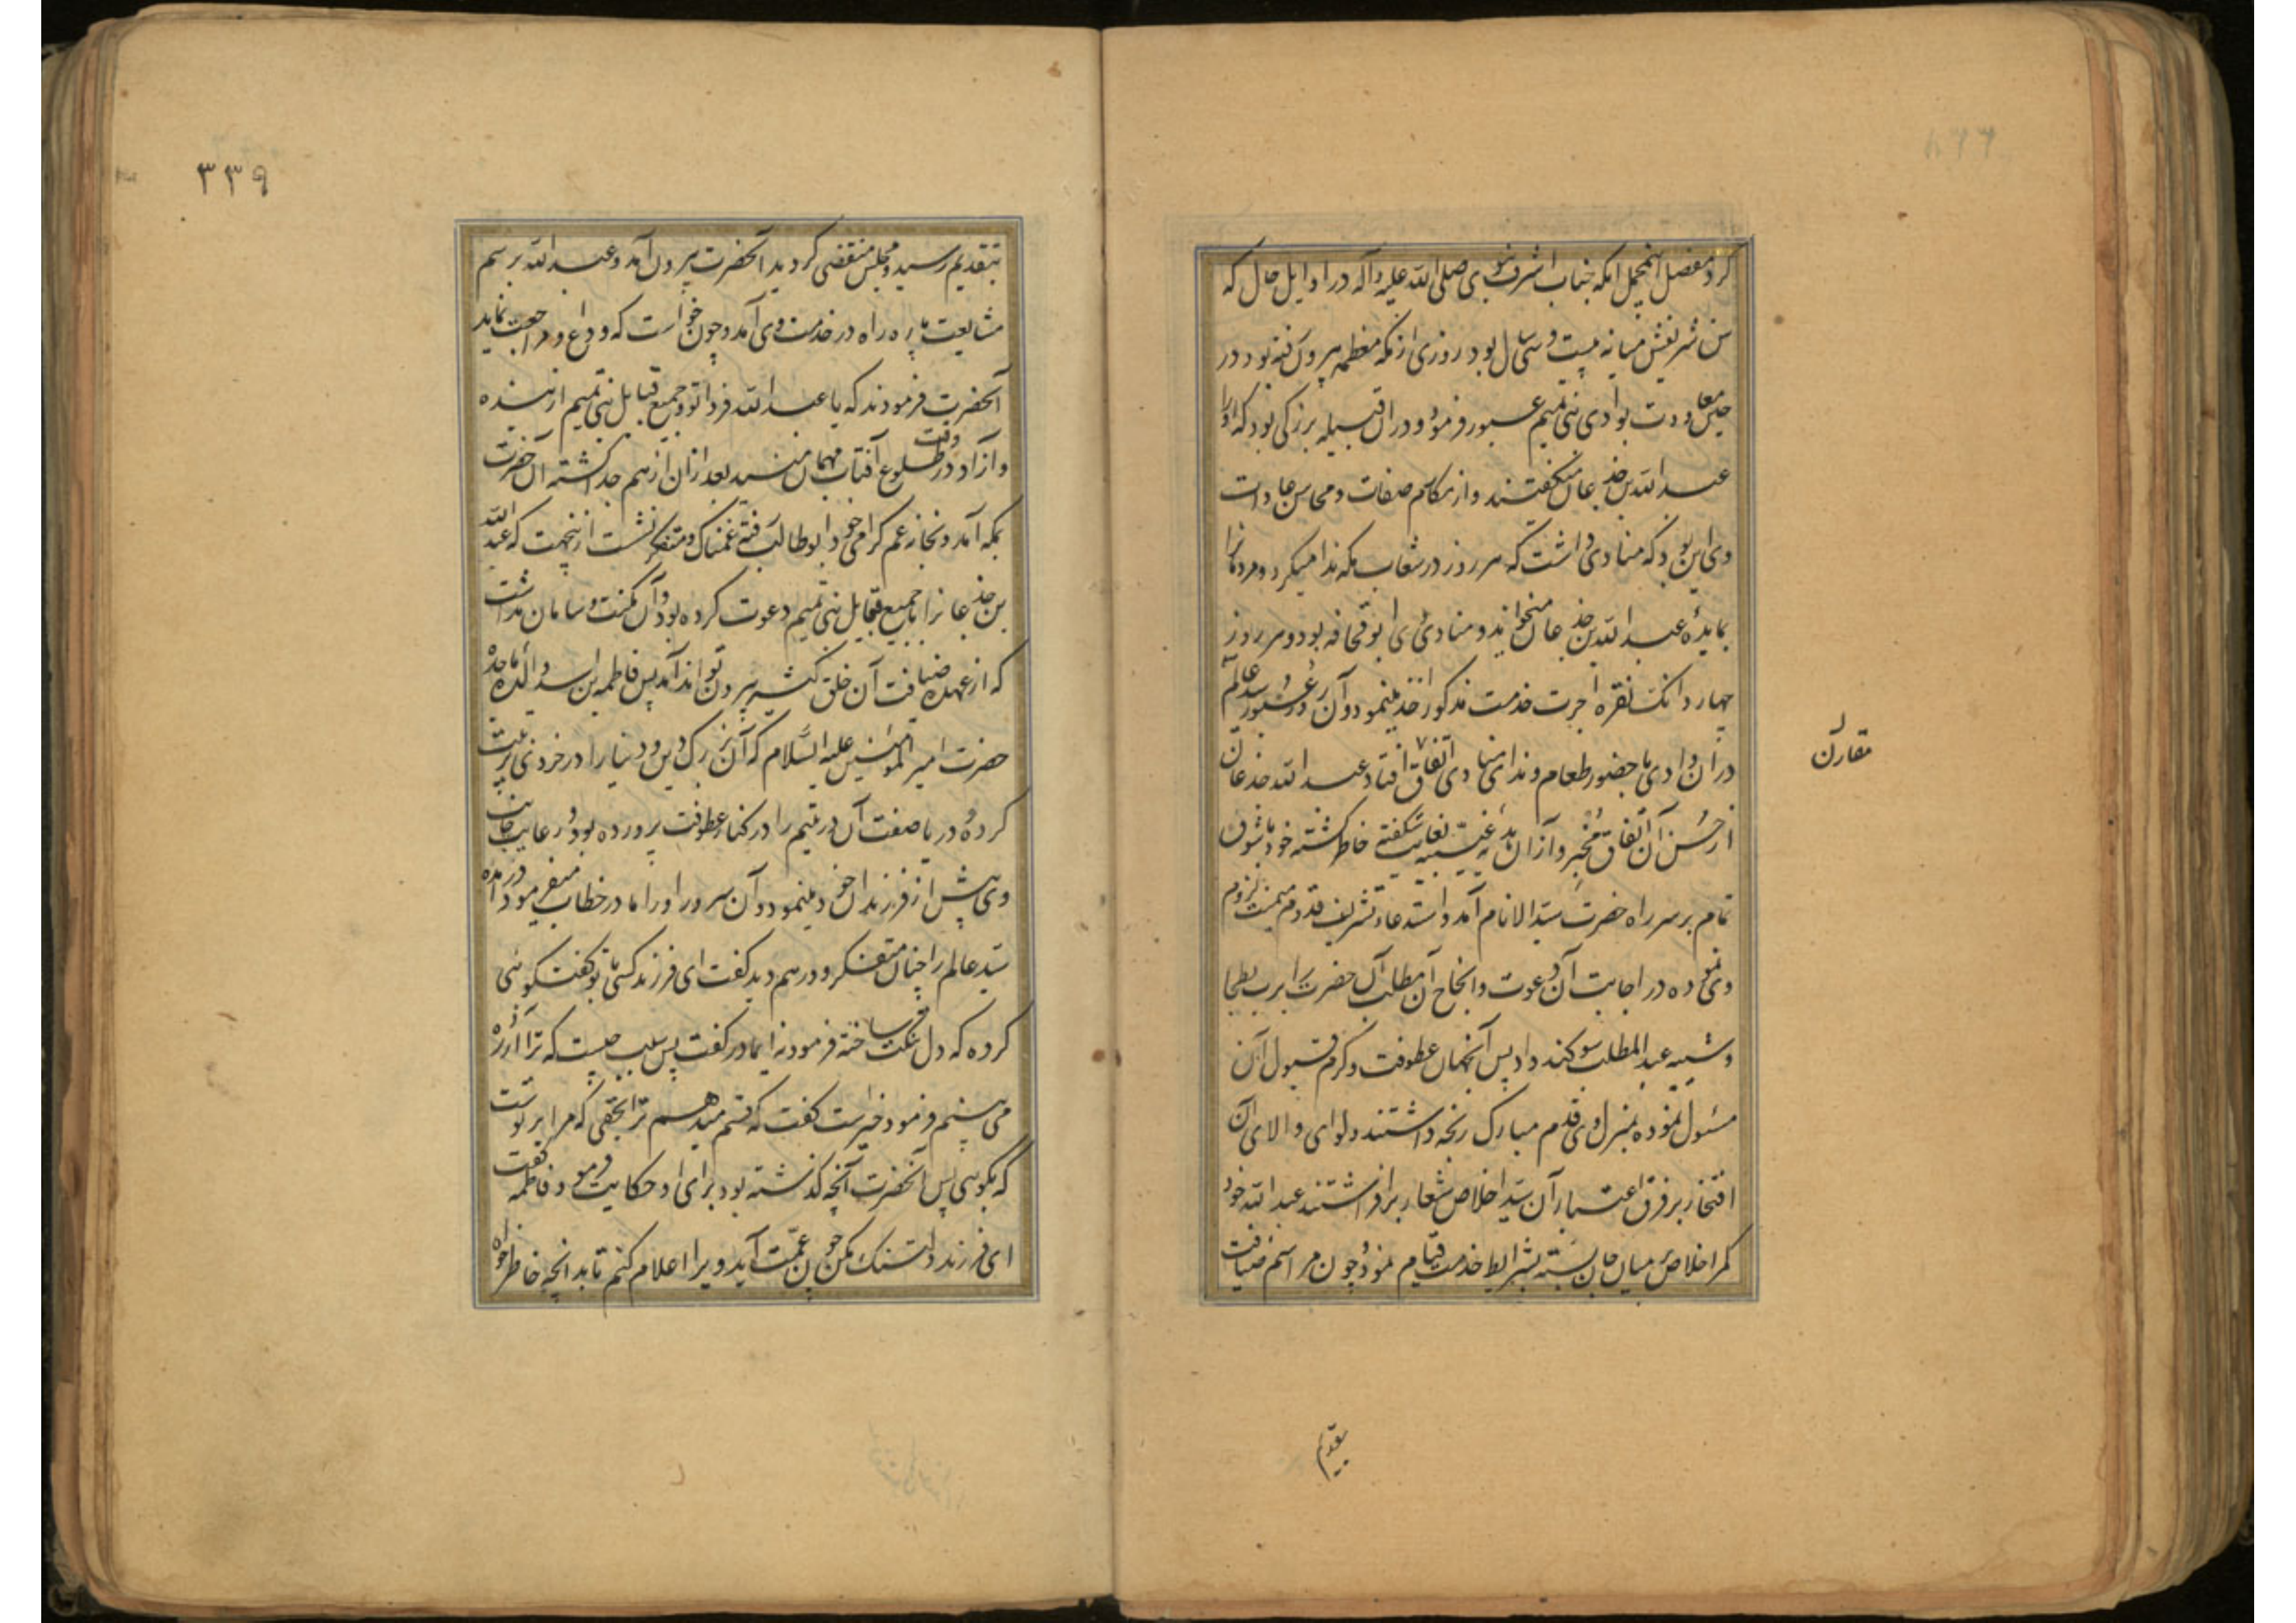 کرد مفصل این مجمل آنکه جناب اشرف نبوی صلی الله علیه و آله در اوایل حال که
سن شریفش میانه بیست و سی سال بود روزی از مکه معظمه بیرون رفته بود در
حین معاودت بوادی بنی تمیم عبور فرمود و در ان قبیله بزرکی بود که او را
عبد الله بن خذعان میکفتند و از مکارم صفات و محاسن عادات
وی این بود که منادی داشت که هر روز در شعاب مکه ندا میکرد و مردمانرا
بمایدهٔ عبد الله بن خذعان میخواند و منادی وی ابو قحافه بود و هر روز
چهار دانک نقره اجرت خدمت مذکور اخذ مینمود و آن روز عبور سید عالم
در ان وادی با حضور طعام و ندای منادی اتفاق افتاد عبد الله خذعان
مقارن
از حسن آن اتفاق متحیر و از ان غیبیه بغایت شکفته خاطر کشته خود بشوق
تمام بر سر راه حضرت سید الانام آمد و استدعاء تشریف قدوم میمنت لزوم
وی نموده در اجابت آن دعوت و انجاح آن مطلب آن حضرت را برب بطحا
و شیبه عبد المطلب سوکند داد پس آنجهان عطوفت و کرم قبول آن
مسئول نموده بمنزل وی قدم مبارک رنجه داشتند و لوای والای آن
افتخار بر فرق اعتبار آن سید اخلاص شعار برافراشتند عبد الله خود
کمر اخلاص بر میان جان بسته بشرایط خدمت قیام نمود و چون مراسم ضیافت
بتقدیم
۳۳۹
بتقدیم رسید و مجلس منقضی کردید آنحضرت بیرون آمد و عبد الله برسم
مشایعت پاره راه در خدمت وی آمد و چون خواست که وداع و مراجعت نماید
آنحضرت فرمودند که یا عبد الله فردا تو و جمیع قبایل بنی تمیم از بنده
و ازاد در وقت طلوع آفتاب مهمان منید بعد از ان از هم جدا کشته آن حضرت
بمکه آمد و بخانه عم کرامی خود ابو طالب رفته غمناک و متفکر نشست ازینجهت که عبد الله
بن خذعانرا با جمیع قبایل بنی تمیم دعوت کرده بود و آن مکنت و سامان نداشت
که از عهده ضیافت آن خلق کثیر بیرون تواند آمد پس فاطمه بن اسد والده ماجده
حضرت امیر المؤمنین علیه السلام که آن بزرک دین و دنیا را در خردی تربیت
کرده و دریا صفت آن در یتیم را در کنار عطوفت پرورده بود و رعایت جانب
وی پیش از فرزندان خود مینمود و آن سرور او را مادر خطاب میفرمود در آمده
سید عالم را چنان متفکر و درهم دید کفت ای فرزند کسی با تو کفت کوئی
کرده که دل تنکت ساخته فرمود نه ایمادر کفت پس سبب چیست که ترا آزرده
می بینم فرمود خیرست کفت که قسم میدهم ترا بحقی که مرا بر تو ست
که بکوئی پس آنحضرت آنچه کذشته بود برای او حکایت فرمود فاطمه کفت
ای فرزند دلتنک مکن چون عمت آید ویرا اعلام کنم تا بدانچه خاطر خواه